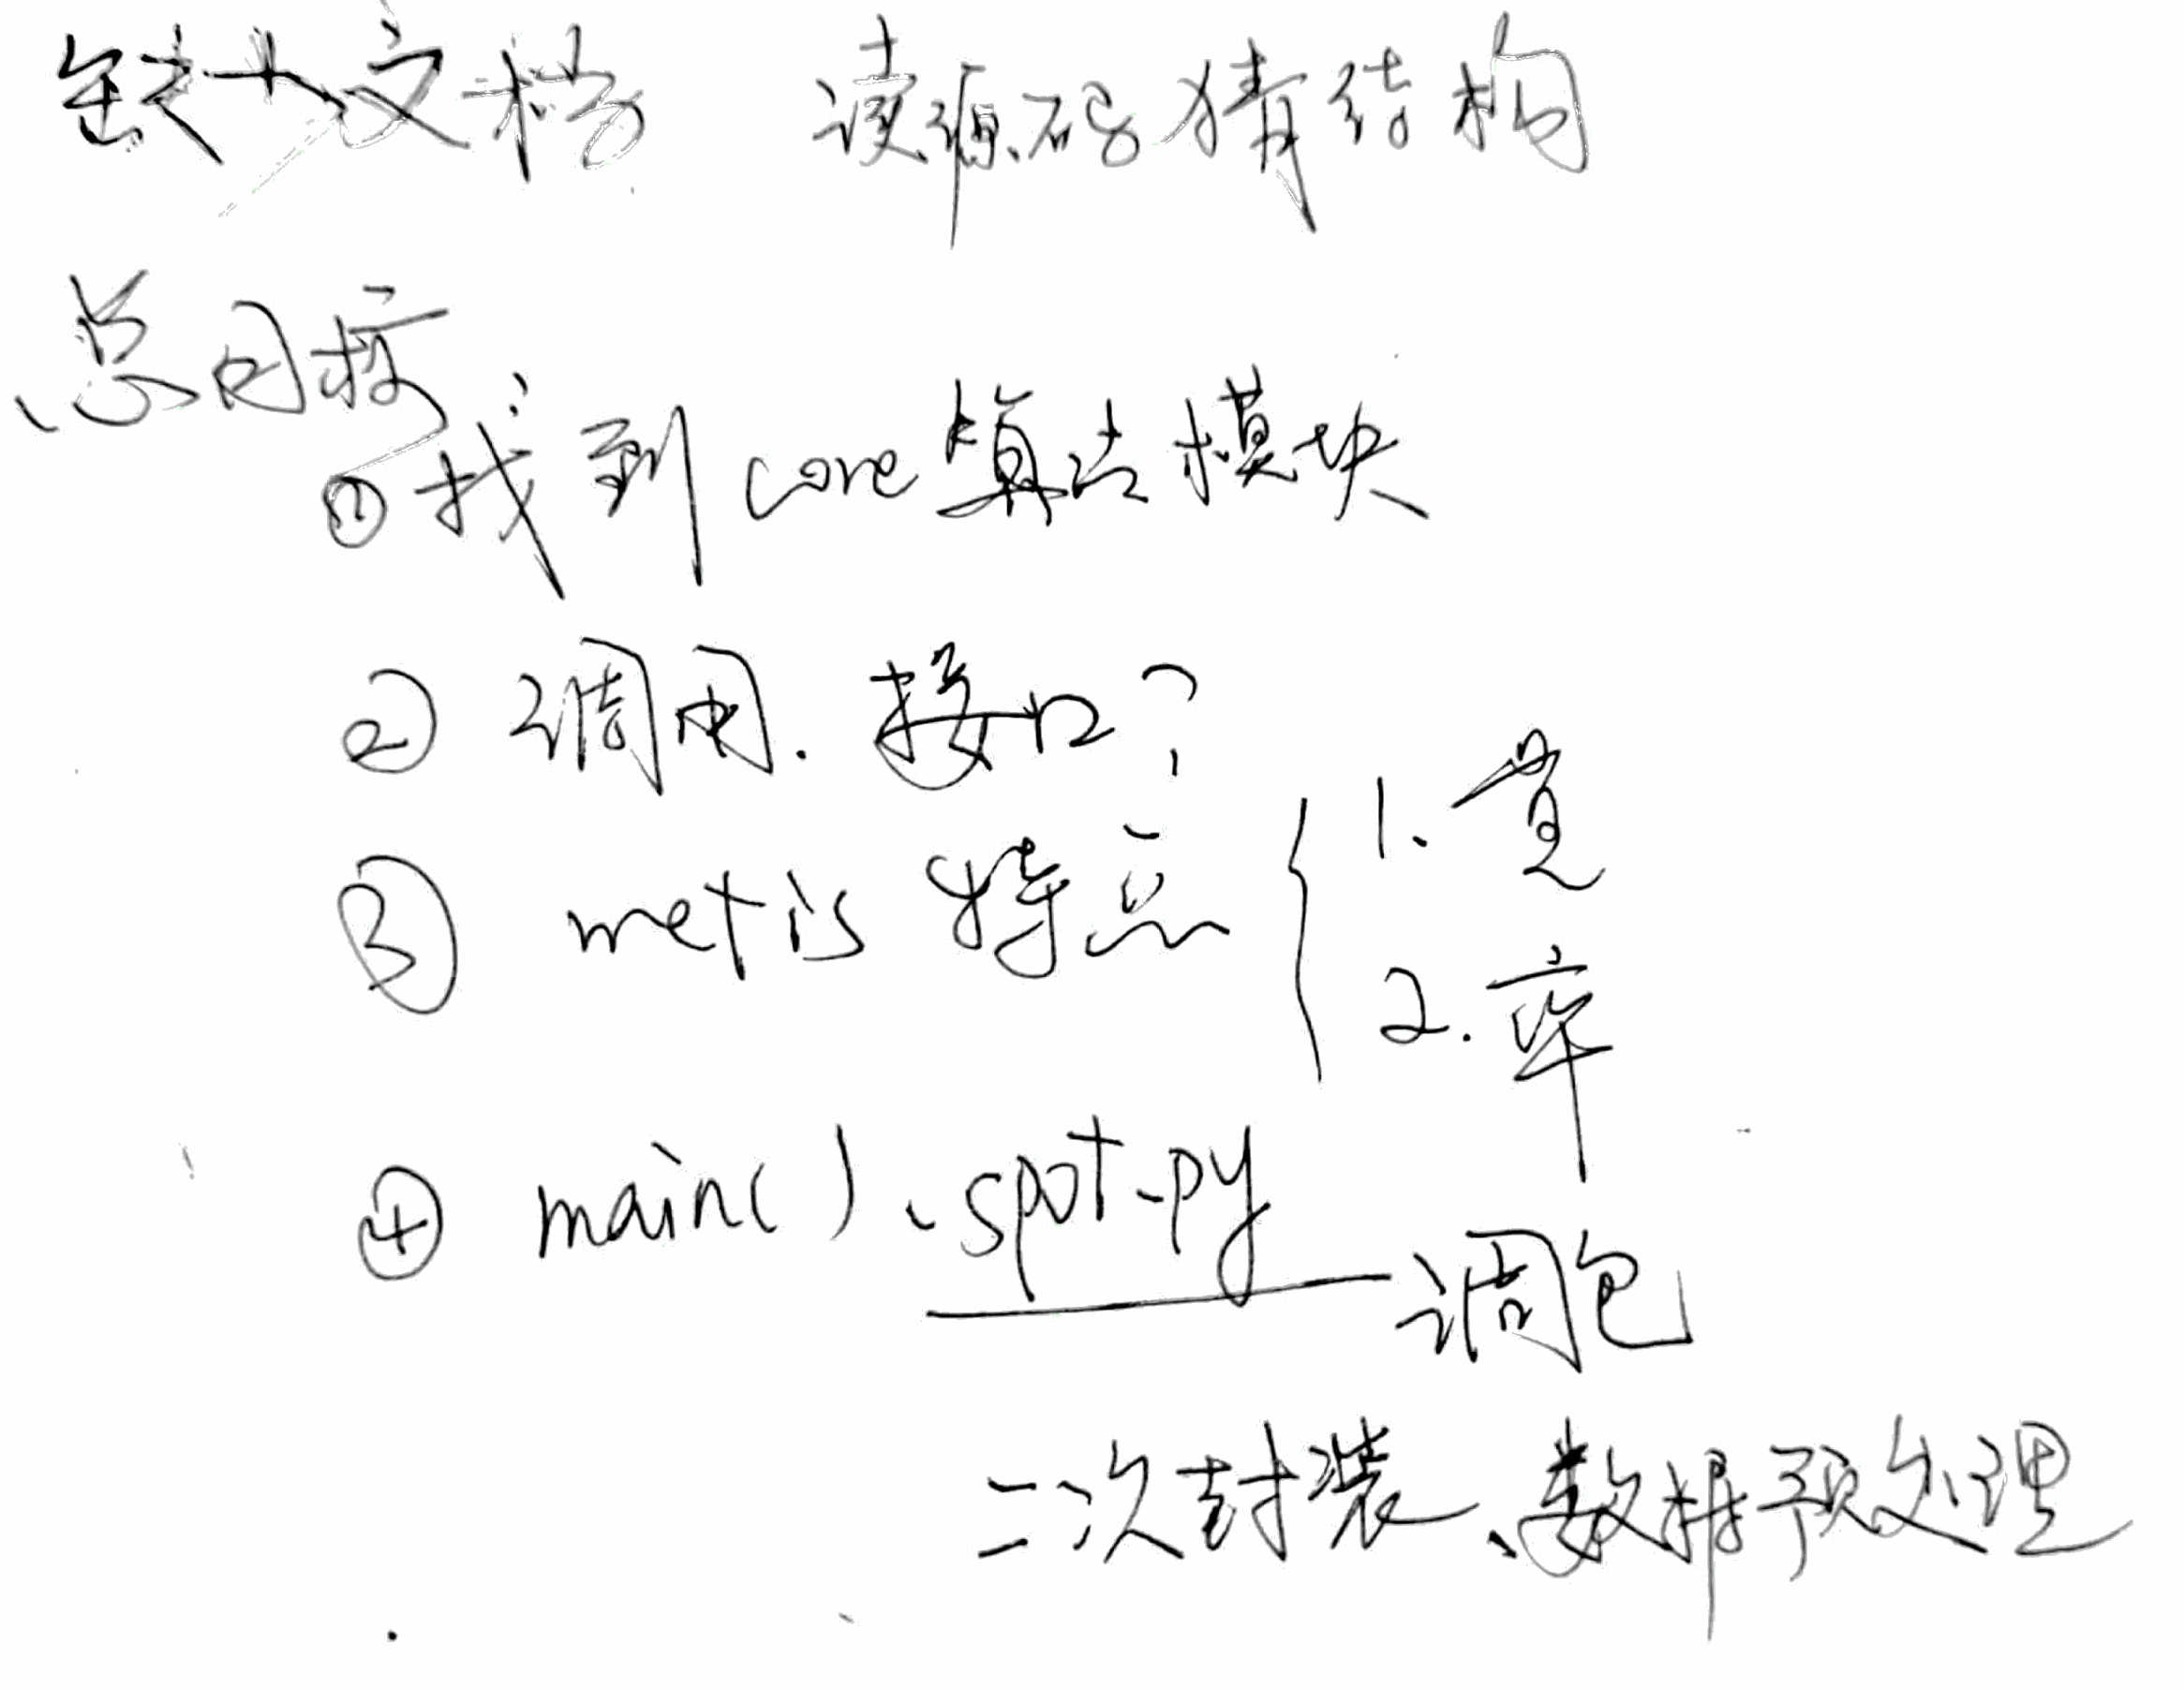 缺少文档 读源码猜结构
总目标
① 找到core算法模块
② 调用.接口?
③ metis 特点 { 1. 量
2. 率
④ main()、spot.py
调包
二次封装、数据预处理